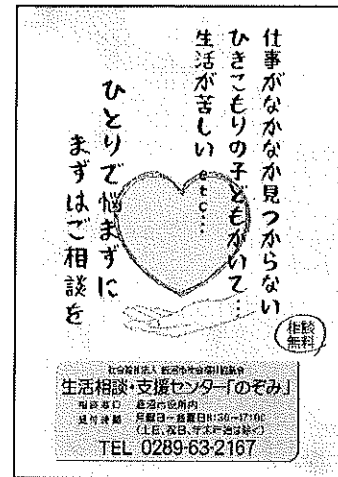 仕事がなかなか見つからない
ひきこもりの子どもがいて…
生活が苦しいetc…
ひとりで悩まずに
まずはご相談を
相談
無料
社会福祉法人 鹿沼市社会福祉協議会
生活相談・支援センター「のぞみ」
相談窓口 鹿沼市役所内
受付時間 月曜日～金曜日8:30~17:00
(土日、祝日、年末年始は除く)
TEL 0289-63-2167